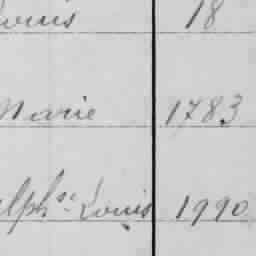 Louis 18
Marie 1783
Alphse Louis 1990